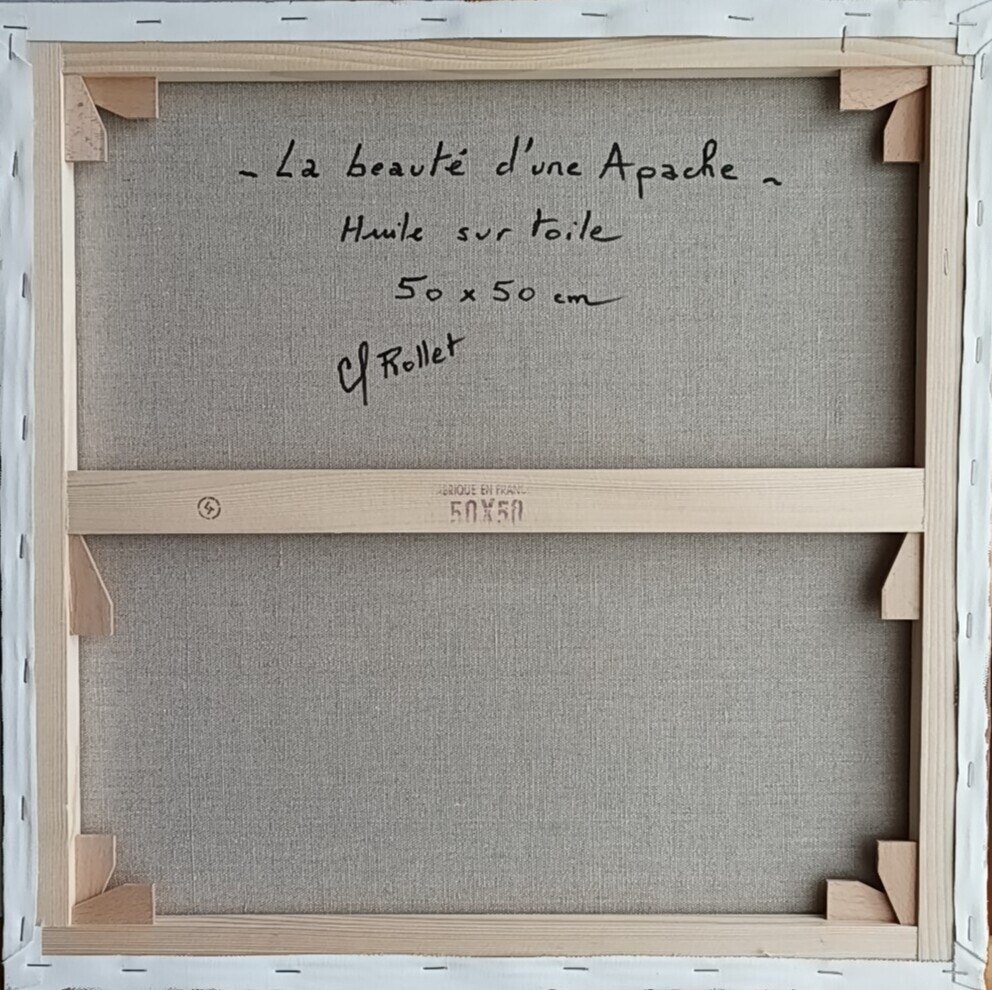 ~ La beauté d'une Apache ~
Huile sur toile
50 x 50 cm
Cf Rollet
ABRIQUE EN FRANC
50X50